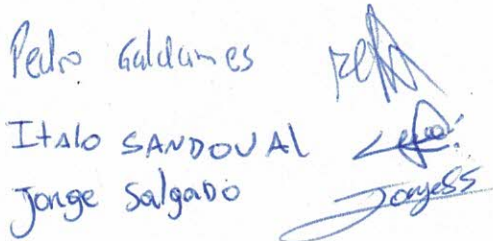 Pedro Galdames
Italo SANDOVAL
Jorge Salgado JorgeSS